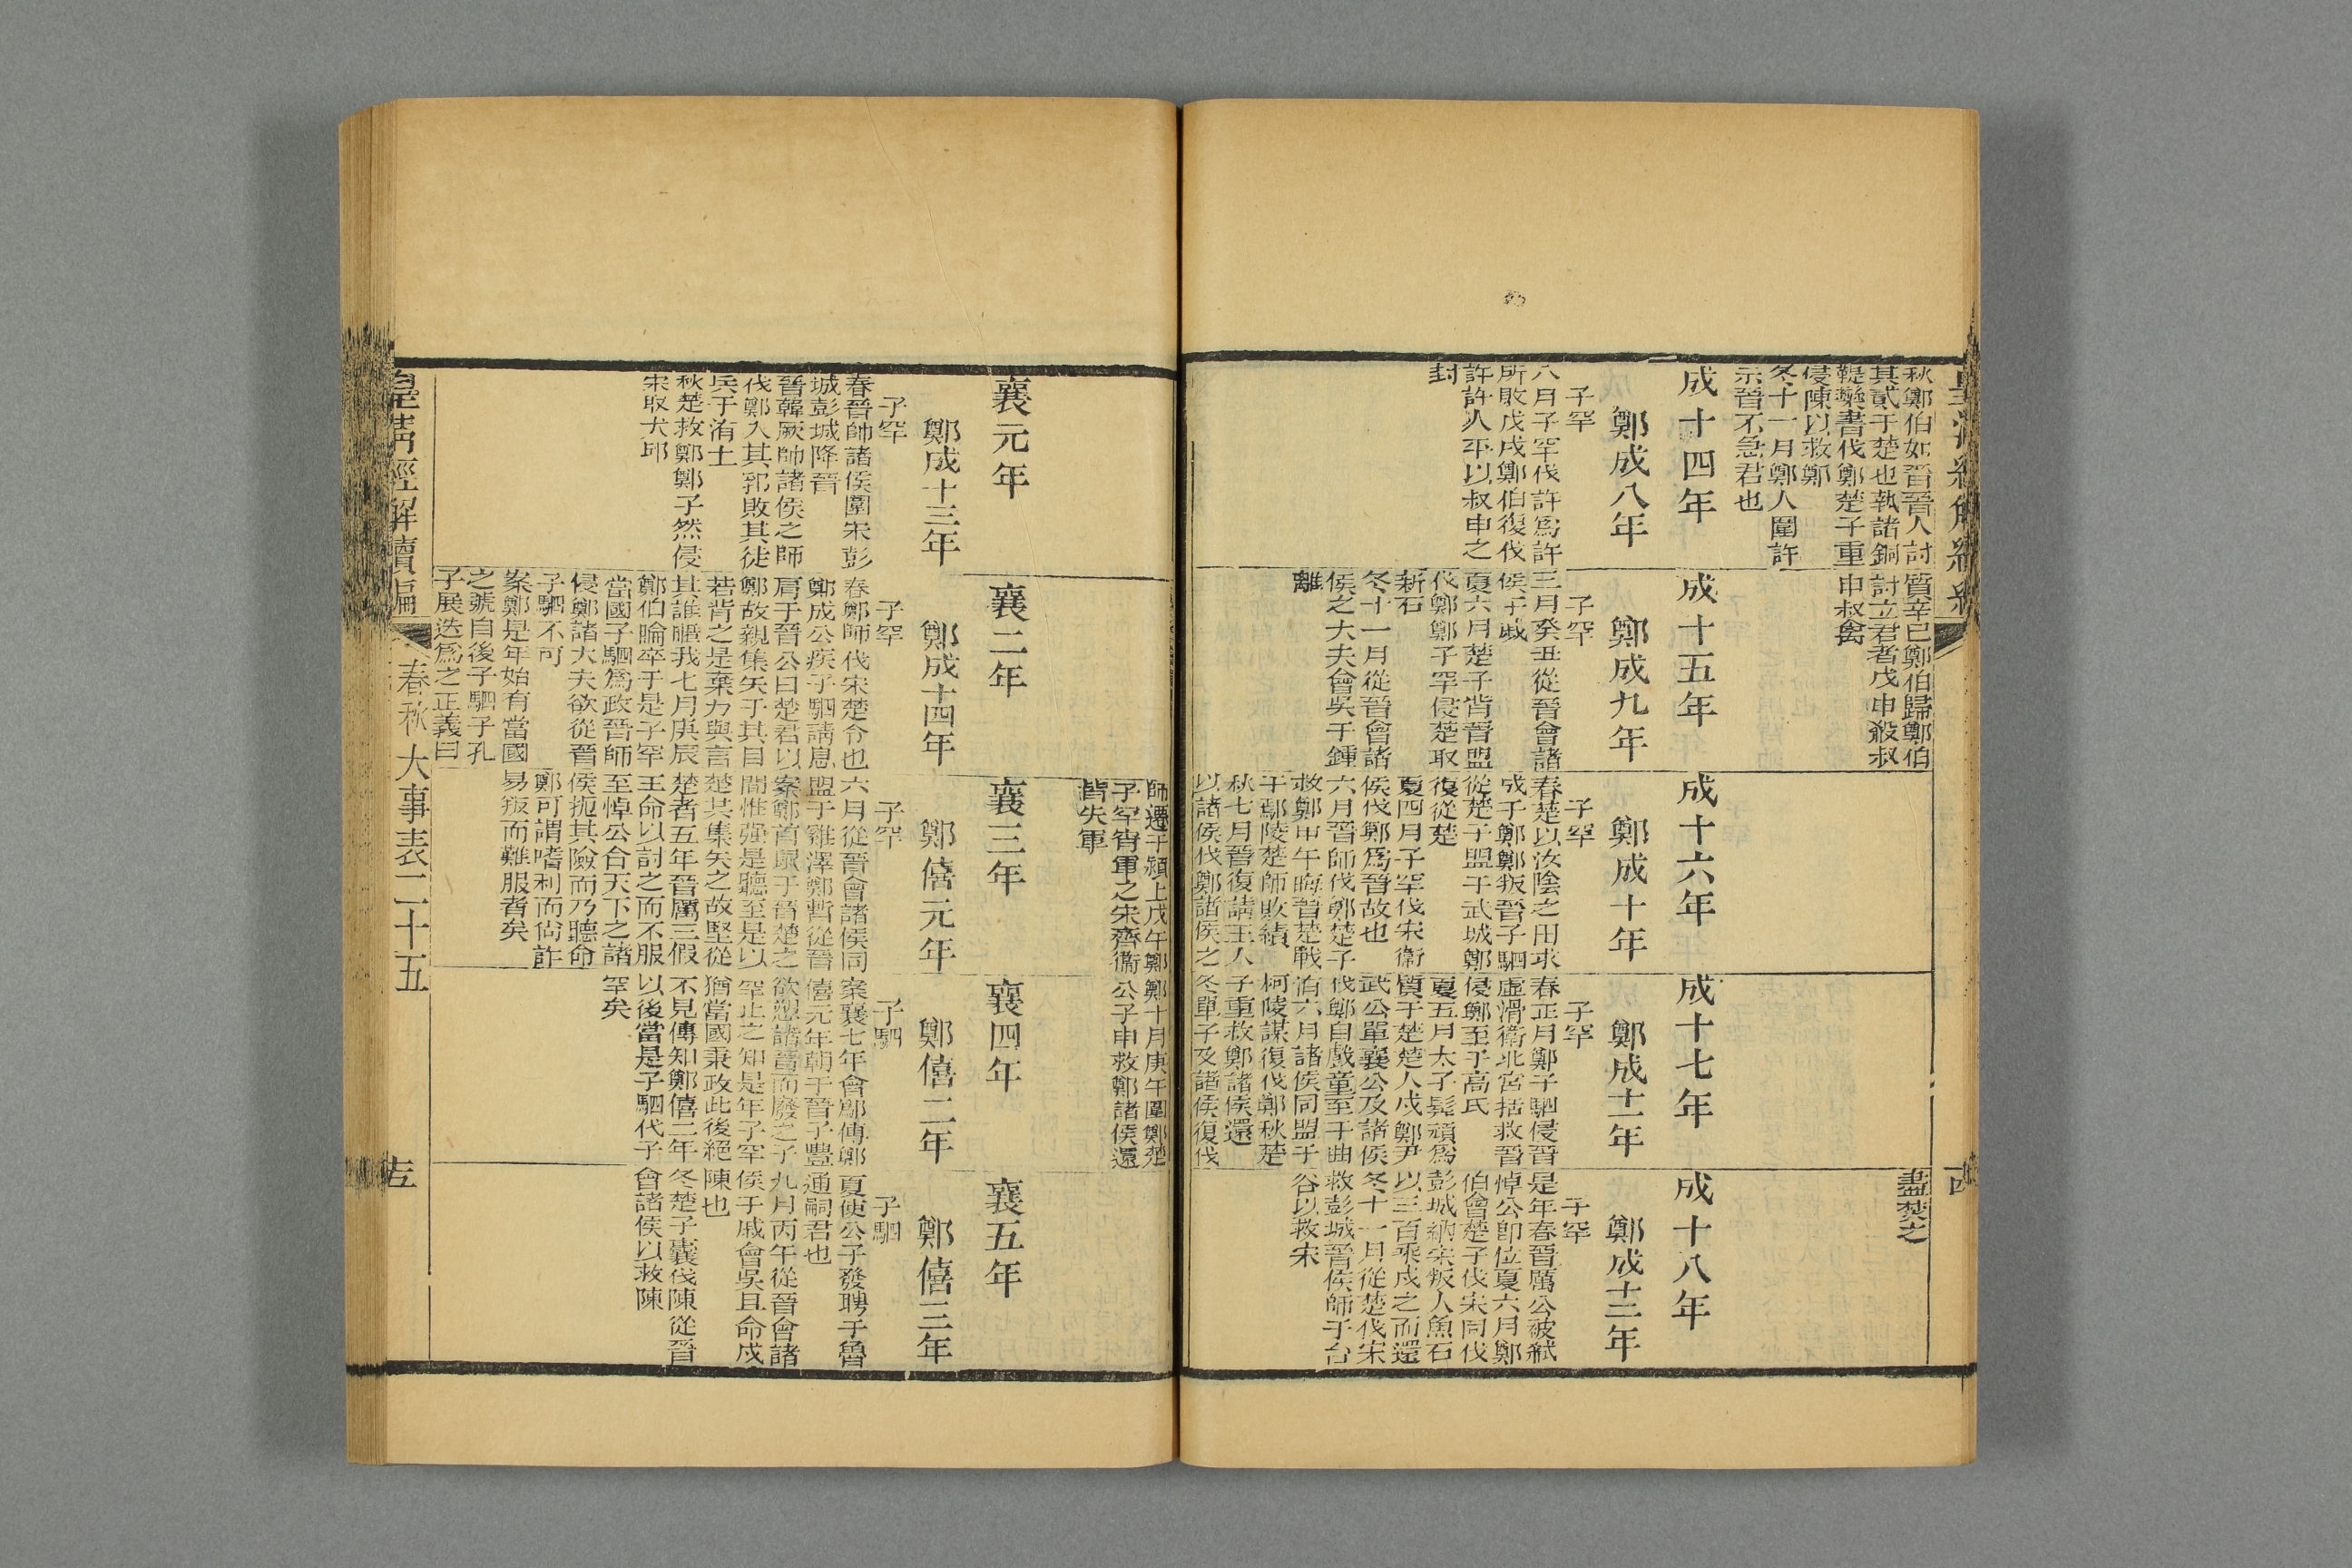 秋鄭伯如晉晉人討
其貳于楚也執諸銅
鞮欒書伐鄭楚子重
侵陳以救鄭
冬十一月鄭人圍許
示晉不急君也
質辛已鄭伯歸鄭伯
討立君者戊申殺叔
申叔禽
盡焚之
成十四年
鄭成八年
子罕
八月子罕伐許爲許
所敗戊戌鄭伯復伐
許許人平以叔申之
封
成十五年
鄭成九年
子罕
三月癸丑從晉會諸
侯于戚
夏六月楚子背晉盟
伐鄭鄭子罕侵楚取
新石
冬十一月從晉會諸
侯之大夫會吳于鍾
離
成十六年
鄭成十年
子罕
春楚以汝陰之田求
成于鄭鄭叛晉子駟
從楚子盟于武城鄭
復從楚
夏四月子罕伐宋衛
侯伐鄭爲晉故也
六月晉師伐鄭楚子
救鄭甲午晦晉楚戰
于鄢陵楚師敗績
秋七月晉復請王人
以諸侯伐鄭諸侯之
師遷于潁上戊午鄭
子罕宵軍之宋齊衞
皆失軍
成十七年
鄭成十一年
子罕
春正月鄭子駟侵晉
虛滑衛北宮括救晉
侵鄭至于高氏
夏五月太子髡頑爲
質于楚楚人戍鄭尹
武公單襄公及諸侯
伐鄭自戲童至于曲
洧六月諸侯同盟于
柯陵謀復伐鄭秋楚
子重救鄭諸侯還
冬單子及諸侯復伐
鄭十月庚午圍鄭楚
公子申救鄭諸侯還
成十八年
鄭成十二年
子罕
是年春晉厲公被弒
悼公卽位夏六月鄭
伯會楚子伐宋同伐
彭城納宋叛人魚石
以三百乘戍之而還
冬十一月從楚伐宋
救彭城晉侯師于台
谷以救宋
襄元年
鄭成十三年
子罕
春晉帥諸侯圍宋彭
城彭城降晉
晉韓厥帥諸侯之師
伐鄭入其郛敗其徒
兵于洧上
秋楚救鄭鄭子然侵
宋取犬邱
襄二年
鄭成十四年
子罕
春鄭師伐宋楚令也
鄭成公疾子駟請息
肩于晉公曰楚君以
鄭故親集矢于其目
若背之是棄力與言
其誰暱我七月庚辰
鄭伯睔卒于是子罕
當國子駟爲政晉師
侵鄭諸大夫欲從晉
子駟不可
案鄭是年始有當國
之號自後子駟子孔
子展迭爲之正義曰
襄三年
鄭僖元年
子罕
六月從晉會諸侯同
盟于雞澤鄭暫從晉
案鄭首鼠于晉楚之
間惟强是聽至是以
楚共集矢之故堅從
楚者五年晉屬三假
王命以討之而不服
至悼公合天下之諸
侯扼其險而乃聽命
鄭可謂嗜利而尙詐
易叛而難服者矣
襄四年
鄭僖二年
子駟
案襄七年會鄬傳鄭
僖元年朝于晉子豐
欲愬諸晉而廢之子
罕止之知是年子罕
猶當國秉政此後絕
不見傳知鄭僖二年
以後當是子駟代子
罕矣
襄五年
鄭僖三年
子駟
夏使公子發聘于魯
通嗣君也
九月丙午從晉會諸
侯于戚會吳且命戍
陳也
冬楚子囊伐陳從晉
會諸侯以救陳
皇淸經解續編
春秋大事表二十五